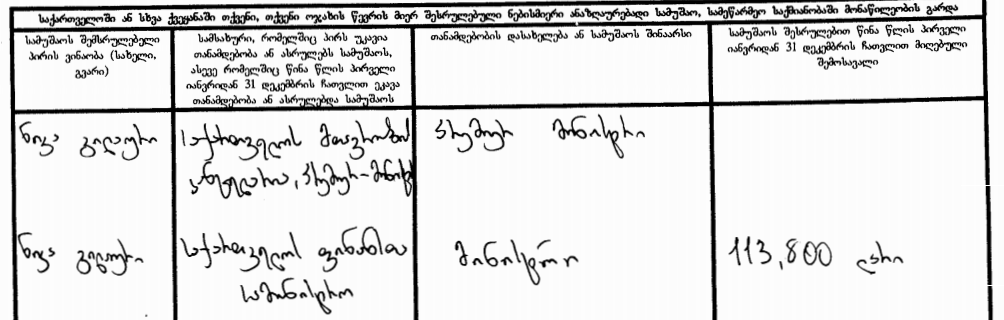 საქართველოში ან სხვა ქვეყანაში თქვენი, თქვენი ოჯახის წევრის მიერ შესრულებული ნებისმიერი ანაზღაურებადი სამუშაო, სამეწარმეო საქმიანობაში მონაწილეობის გარდა
სამუშაოს შემსრულებელი
პირის ვინაობა (სახელი,
გვარი)
სამსახური, რომელშიც პირს უკავია
თანამდებობა ან ასრულებს სამუშაოს,
ასევე რომელშიც წინა წლის პირველი
იანვრიდან 31 დეკემბრის ჩათვლით ეკავა
თანამდებობა ან ასრულებდა სამუშაოს
თანამდებობის დასახელება ან სამუშაოს შინაარსი
სამუშაოს შესრულებით წინა წლის პირველი
იანვრიდან 31 დეკემბრის ჩათვლით მიღებული
შემოსავალი
ნიკა გილაური
საქართველოს მთავრობის
კანცელარია, პრემიერ-მინისტრი
პრემიერ მინისტრი
ნიკა გილაური
საქართველოს ფინანსთა
სამინისტრო
მინისტრი
113,800 ლარი